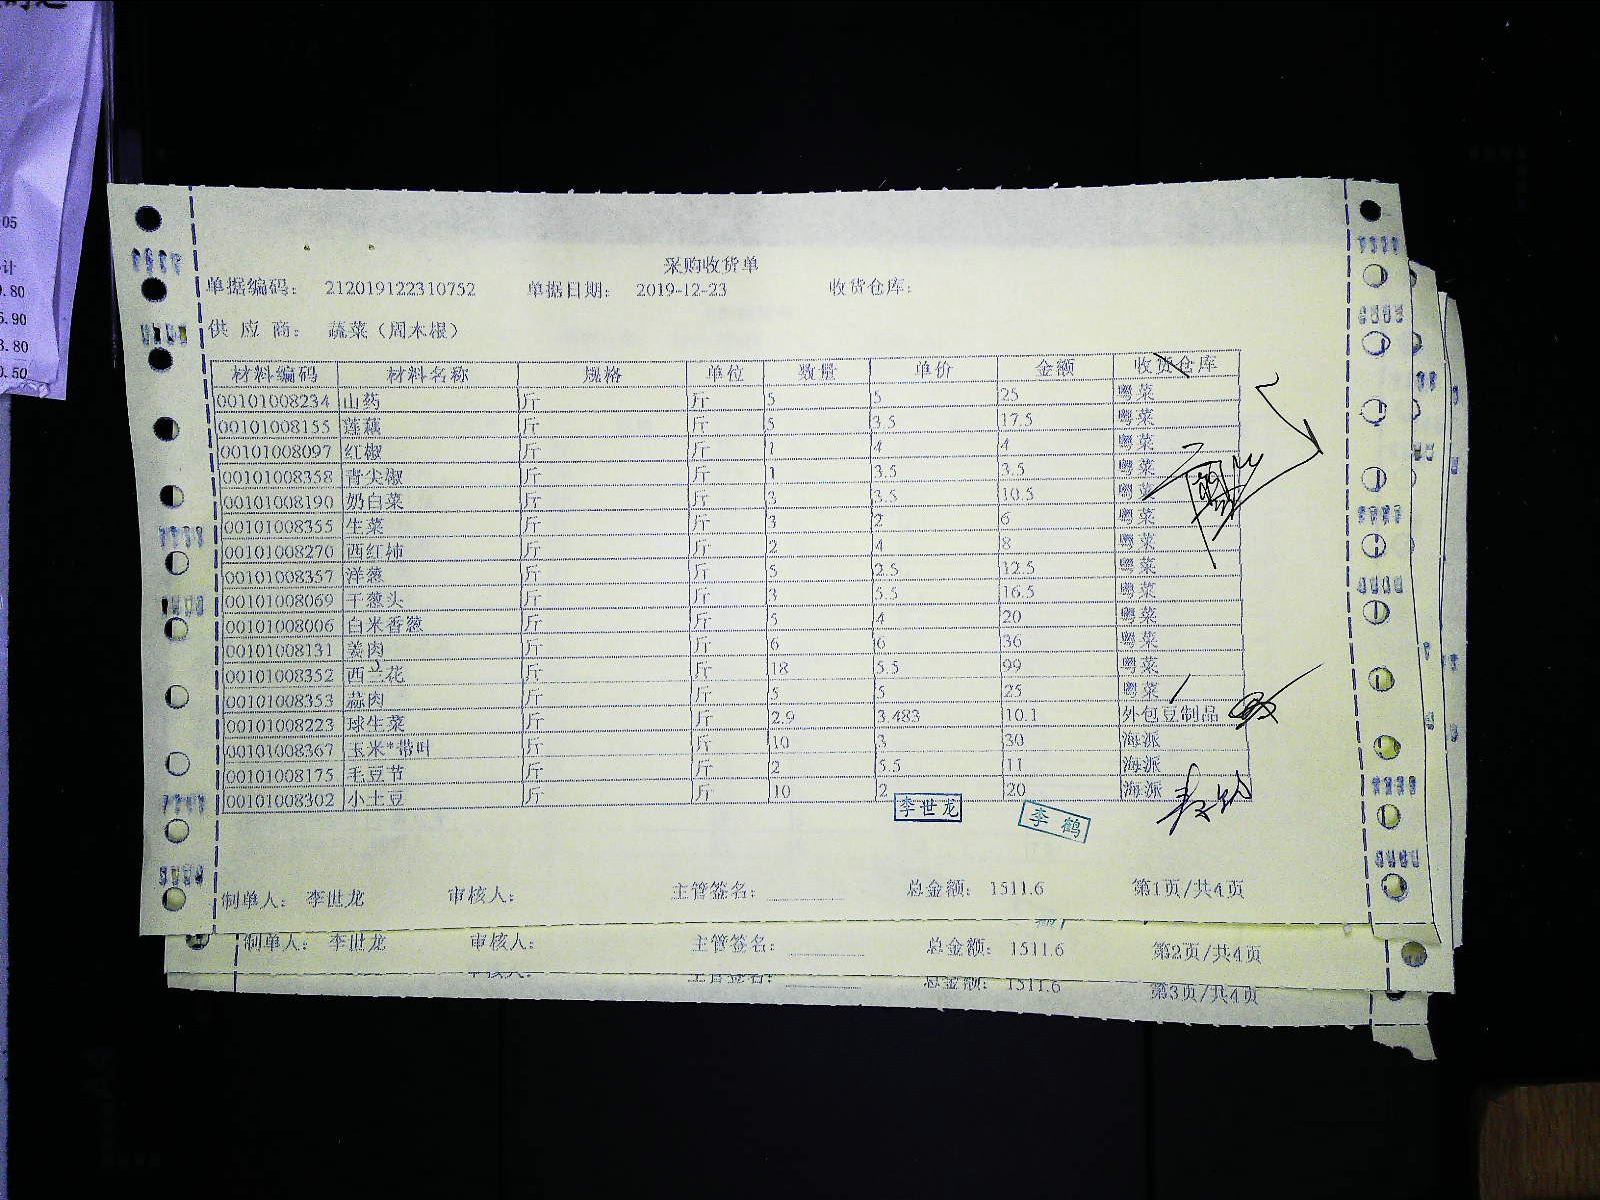 05
计
9.80
6.90
3.80
0.50
采购收货单
单据编码： 212019122310752 单据日期： 2019-12-23 收货仓库：
供 应 商： 蔬菜（周木根）
材料编码 材料名称 规格 单位 数量 单价 金额 收货仓库
00101008234 山药 斤 斤 5 5 25 粤菜
00101008155 莲藕 斤 斤 5 3.5 17.5 粤菜
00101008097 红椒 斤 斤 1 4 4 粤菜
00101008358 青尖椒 斤 斤 1 3.5 3.5 粤菜
00101008190 奶白菜 斤 斤 3 3.5 10.5 粤菜
00101008355 生菜 斤 斤 3 2 6 粤菜
00101008270 西红柿 斤 斤 2 4 8 粤菜
00101008357 洋葱 斤 斤 5 2.5 12.5 粤菜
00101008069 干葱头 斤 斤 3 5.5 16.5 粤菜
00101008006 白米香葱 斤 斤 5 4 20 粤菜
00101008131 姜肉 斤 斤 6 6 36 粤菜
00101008352 西兰花 斤 斤 18 5.5 99 粤菜
00101008353 蒜肉 斤 斤 5 5 25 粤菜
00101008223 球生菜 斤 斤 2.9 3.483 10.1 外包豆制品
00101008367 玉米*带叶 斤 斤 10 3 30 海派
00101008175 毛豆节 斤 斤 2 5.5 11 海派
00101008302 小土豆 斤 斤 10 2 20 海派
李世龙 李鹤
制单人： 李世龙 审核人： 主管签名： 总金额： 1511.6 第1页/共4页
制单人： 李世龙 审核人： 主管签名： 总金额： 1511.6 第2页/共4页
审核人： 主管签名： 总金额： 1511.6 第3页/共4页